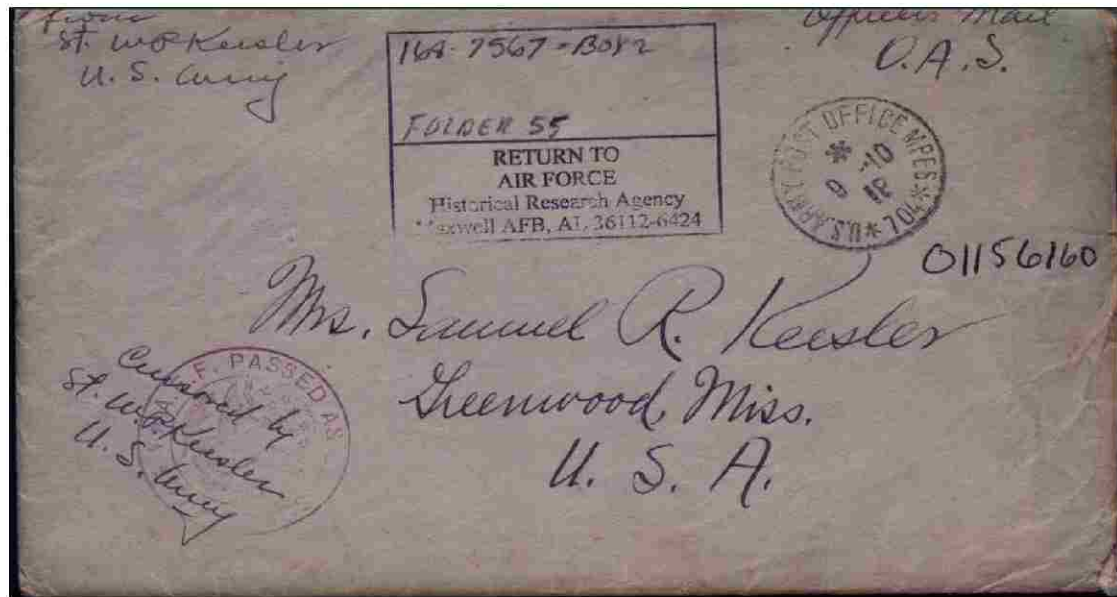 from
Lt. W R Keesler
U. S. Army
Officers Mail
O. A. S.
168-7567-Box 2
FOLDER 55
RETURN TO
AIR FORCE
Historical Research Agency
Maxwell AFB, AL 36112-6424
U.S. ARMY POST OFFICE MPES * 704 *
* -10
9 18
01156160
Mrs. Samuel R. Keesler
Greenwood, Miss.
U. S. A.
PASSED AS
Censored by
Lt. W R Keesler
U. S. Army